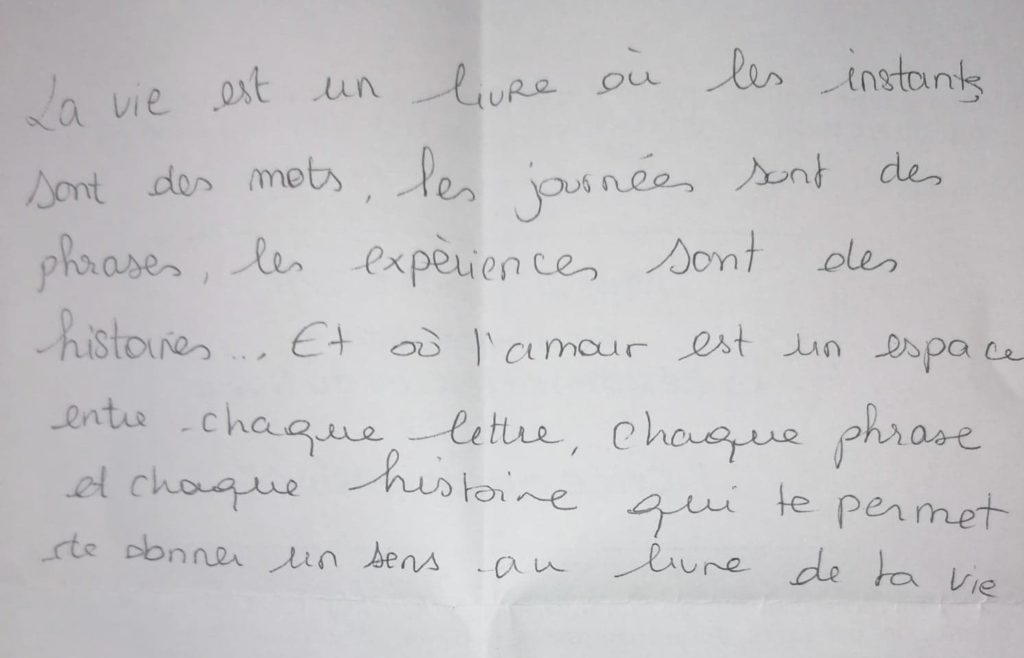 La vie est un livre où les instants
sont des mots, les journées sont des
phrases, les expèriences sont des
histoires... Et où l'amour est un espace
entre chaque lettre, chaque phrase
et chaque histoire qui te permet
de donner un sens au livre de ta vie